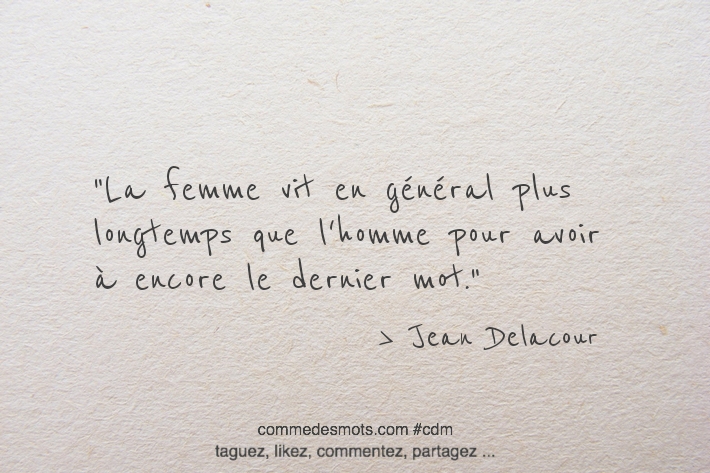 "La femme vit en général plus
longtemps que l'homme pour avoir
à encore le dernier mot."
> Jean Delacour
commedesmots.com #cdm
taguez, likez, commentez, partagez ...